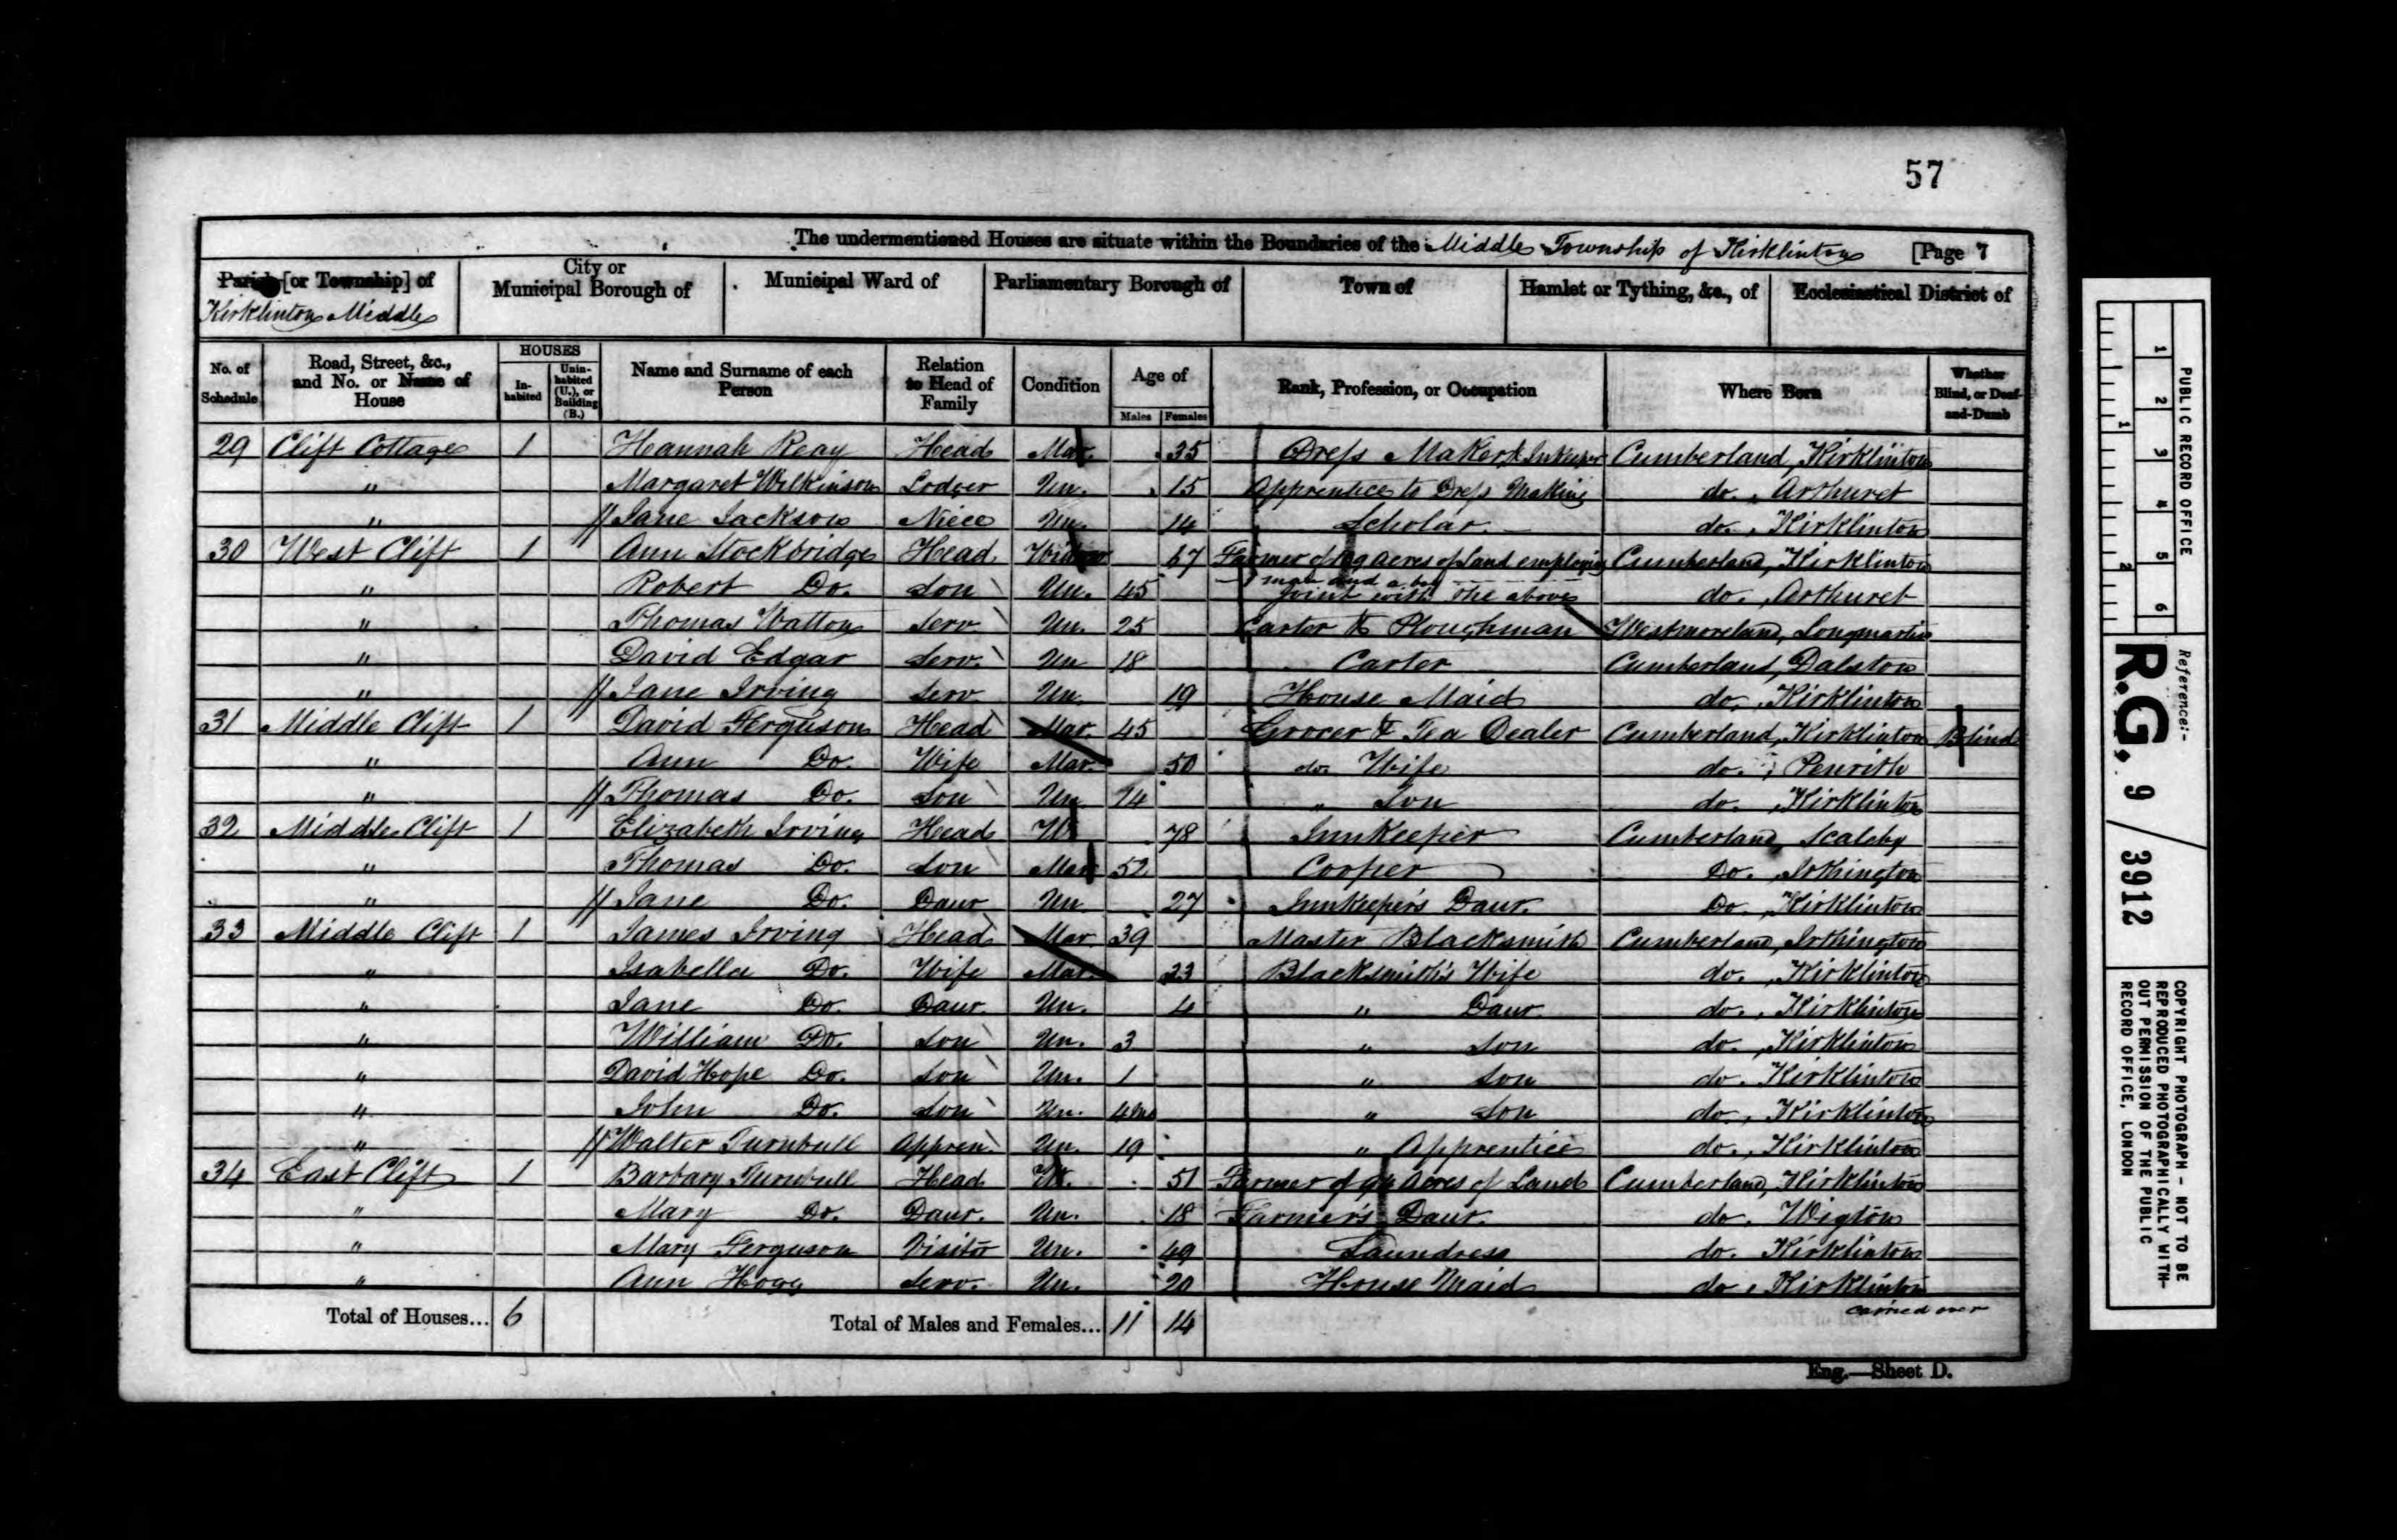 57
The undermentioned Houses are situate within the Boundaries of the Middle Township of Kirklinton [Page 7
Parish [or Township] of City or Municipal Borough of Municipal Ward of Parliamentary Borough of Town of Hamlet or Tything, &c., of Ecclesiastical District of
Kirklinton Middle
No. of Schedule Road, Street, &c., and No. or Name of House HOUSES In-habited Unin-habited (U.), or Building (B.) Name and Surname of each Person Relation to Head of Family Condition Age of Males Females Rank, Profession, or Occupation Where Born Whether Blind, or Deaf-and-Dumb
29 Clift Cottage 1 Hannah Reay Head Mar. 35 Dress Maker & Inkeeper Cumberland, Kirklinton
" Margaret Wilkinson Lodger Un. 15 Apprentice to Dress Making do. Arthuret
" // Jane Jackson Niece Un. 14 Scholar do. Kirklinton
30 West Clift 1 Ann Stockbridge Head Widow 67 Farmer of acres of Land employing Cumberland, Kirklinton
1 man and a boy
" Robert Do. Son Un. 45 Joint with the above do. Arthuret
" Thomas Watton Serv. Un. 25 Carter & Ploughman Westmoreland, Longmartin
" David Edgar Serv. Un 18 Carter Cumberland, Dalston
" // Jane Irving Serv Un. 19 House Maid do. Kirklinton
31 Middle Clift 1 David Ferguson Head Mar. 45 Grocer & Tea Dealer Cumberland, Kirklinton Blind
" Ann Do. Wife Mar. 50 do. Wife do. Penrith
" // Thomas Do. Son Un 14 " Son do. Kirklinton
32 Middle Clift 1 Elizabeth Irving Head W 78 Innkeeper Cumberland, Scaleby
" Thomas Do. Son Mar 52 Cooper Do. Irthington
" // Jane Do. Daur Un 27 Innkeeper's Daur. Do. Kirklinton
33 Middle Clift 1 James Irving Head Mar. 39 Master Blacksmith Cumberland, Irthington
" Isabella Do. Wife Mar. 33 Blacksmith's Wife do. Kirklinton
" Jane Do. Daur. Un. 4 " Daur do. Kirklinton
" William Do. Son Un. 3 " Son do. Kirklinton
" David Hope Do. Son Un. 1 " Son do. Kirklinton
" John Do. Son Un. 4mo " Son do. Kirklinton
" // Walter Turnbull Appren. Un. 19 " Apprentice do. Kirklinton
34 East Clift 1 Barbary Turnbull Head W. 51 Farmer of acres of Land Cumberland, Kirklinton
" Mary Do. Daur. Un. 18 Farmer's Daur. do. Wigton
" Mary Ferguson Visitor Un. 49 Laundress do. Kirklinton
" Ann Hogg Serv. Un. 20 House Maid do. Kirklinton
carried over
Total of Houses... 6 Total of Males and Females... 11 14
Eng.—Sheet D.
1 2 3 4 5 6
1 2
PUBLIC RECORD OFFICE
Reference:-
R.G. 9 / 3912
COPYRIGHT PHOTOGRAPH - NOT TO BE
REPRODUCED PHOTOGRAPHICALLY WITH-
OUT PERMISSION OF THE PUBLIC
RECORD OFFICE, LONDON